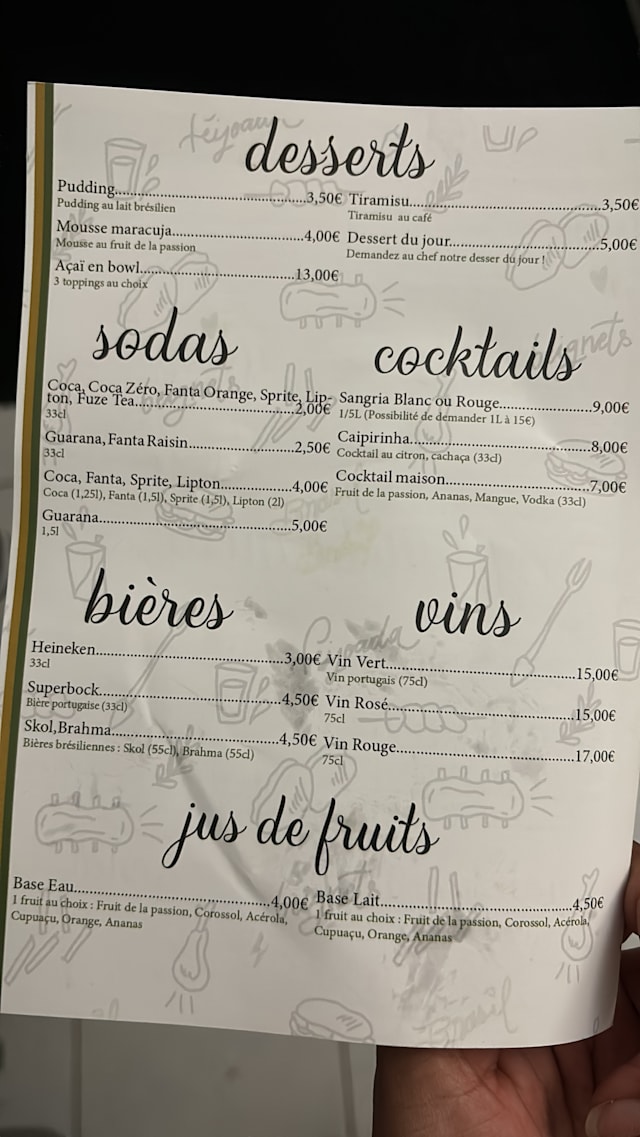 feijoada
desserts
Pudding..........3,50€
Pudding au lait brésilien
Mousse maracuja..........4,00€
Mousse au fruit de la passion
Açaï en bowl..........13,00€
3 toppings au choix
Tiramisu..........3,50€
Tiramisu au café
Dessert du jour..........5,00€
Demandez au chef notre desser du jour !
sodas
Coca, Coca Zéro, Fanta Orange, Sprite, Lip-
ton, Fuze Tea..........2,00€
33cl
Guarana, Fanta Raisin..........2,50€
33cl
Coca, Fanta, Sprite, Lipton..........4,00€
Coca (1,25l), Fanta (1,5l), Sprite (1,5l), Lipton (2l)
Guarana..........5,00€
1,5l
cocktails
Sangria Blanc ou Rouge..........9,00€
1/5L (Possibilité de demander 1L à 15€)
Caipirinha..........8,00€
Cocktail au citron, cachaça (33cl)
Cocktail maison..........7,00€
Fruit de la passion, Ananas, Mangue, Vodka (33cl)
bières
Heineken..........3,00€
33cl
Superbock..........4,50€
Bière portugaise (33cl)
Skol,Brahma..........4,50€
Bières brésiliennes : Skol (55cl), Brahma (55cl)
vins
Vin Vert..........15,00€
Vin portugais (75cl)
Vin Rosé..........15,00€
75cl
Vin Rouge..........17,00€
75cl
jus de fruits
Base Eau..........4,00€
1 fruit au choix : Fruit de la passion, Corossol, Acérola,
Cupuaçu, Orange, Ananas
Base Lait..........4,50€
1 fruit au choix : Fruit de la passion, Corossol, Acérola,
Cupuaçu, Orange, Ananas
Brasil